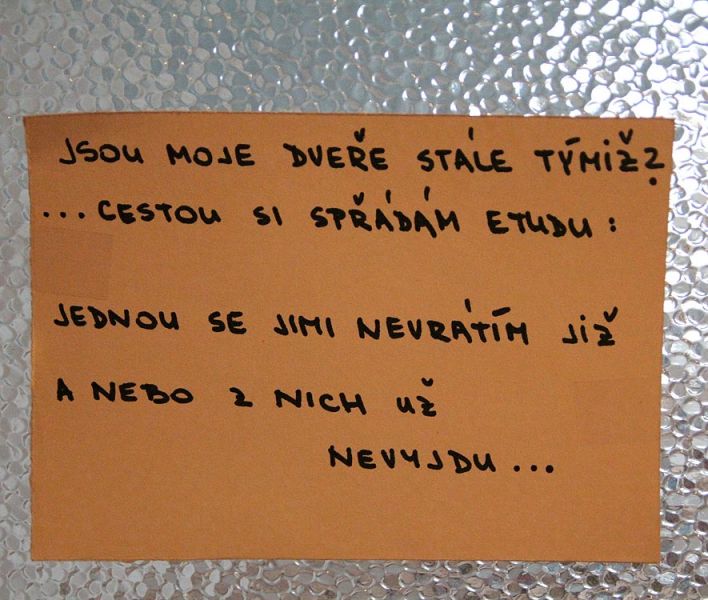 JSOU MOJE DVEŘE STÁLE TÝMIŽ?
...CESTOU SI SPŘÁDÁM ETUDU:
JEDNOU SE JIMI NEVRÁTÍM JIŽ
A NEBO Z NICH UŽ
NEVYJDU...